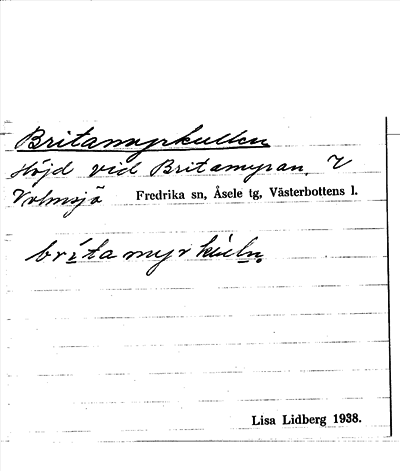 Britamyrkullen
Höjd vid Britamyran, V
Volmsjö Fredrika sn, Åsele tg, Västerbottens l.
Lisa Lidberg 1938.